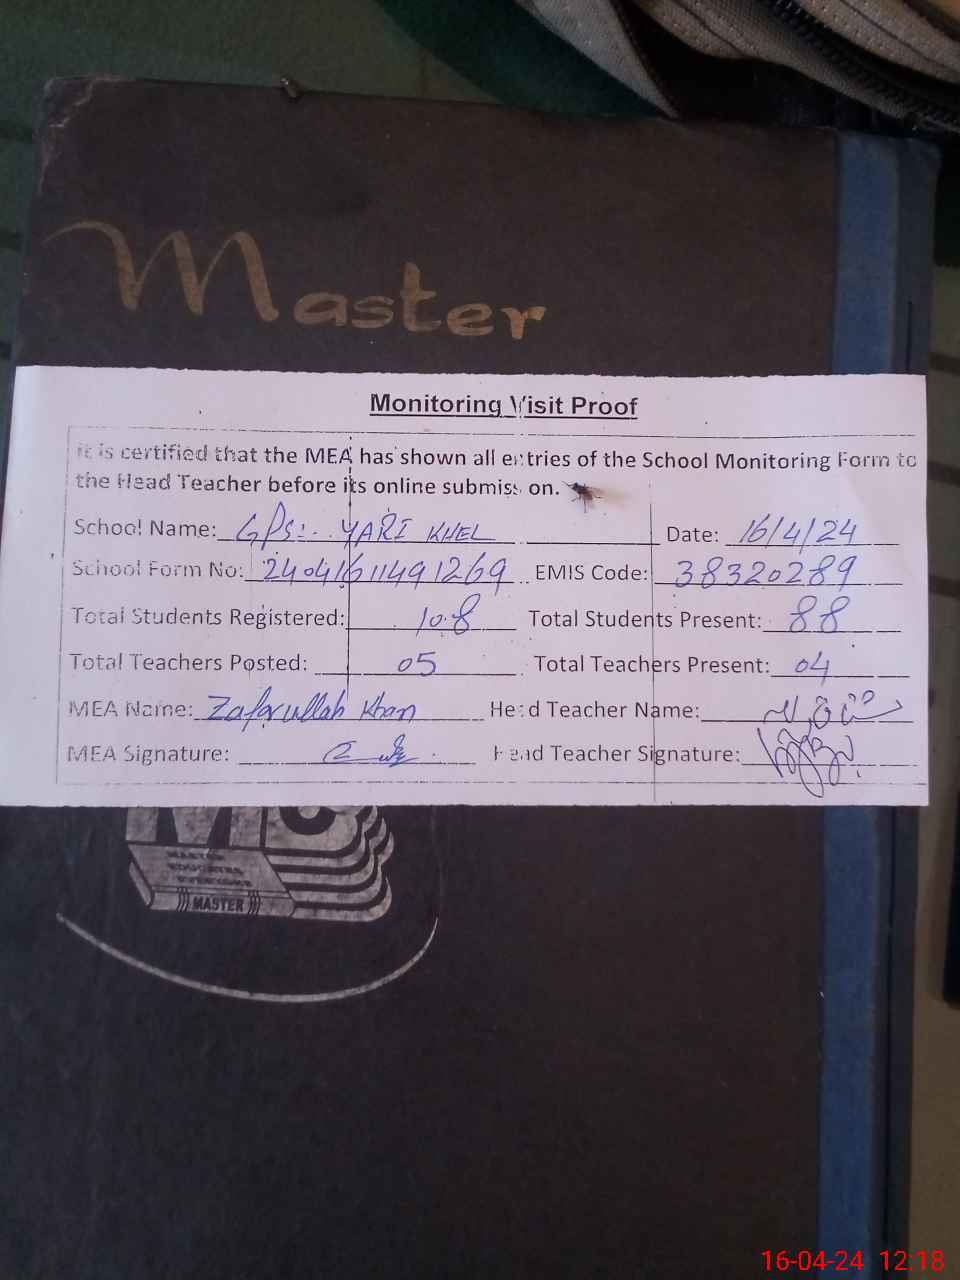 Master
Monitoring Visit Proof
It is certified that the MEA has shown all entries of the School Monitoring Form to
the Head Teacher before its online submission.
School Name: GPS:- YARI KHEL Date: 16/4/24
School Form No: 24041611491269 EMIS Code: 38320289
Total Students Registered: 108 Total Students Present: 88
Total Teachers Posted: 05 Total Teachers Present: 04
MEA Name: Zafarullah Khan Head Teacher Name:
MEA Signature: Head Teacher Signature:
MASTER
EDUCATES
EVERYONE
MASTER
16-04-24 12:18